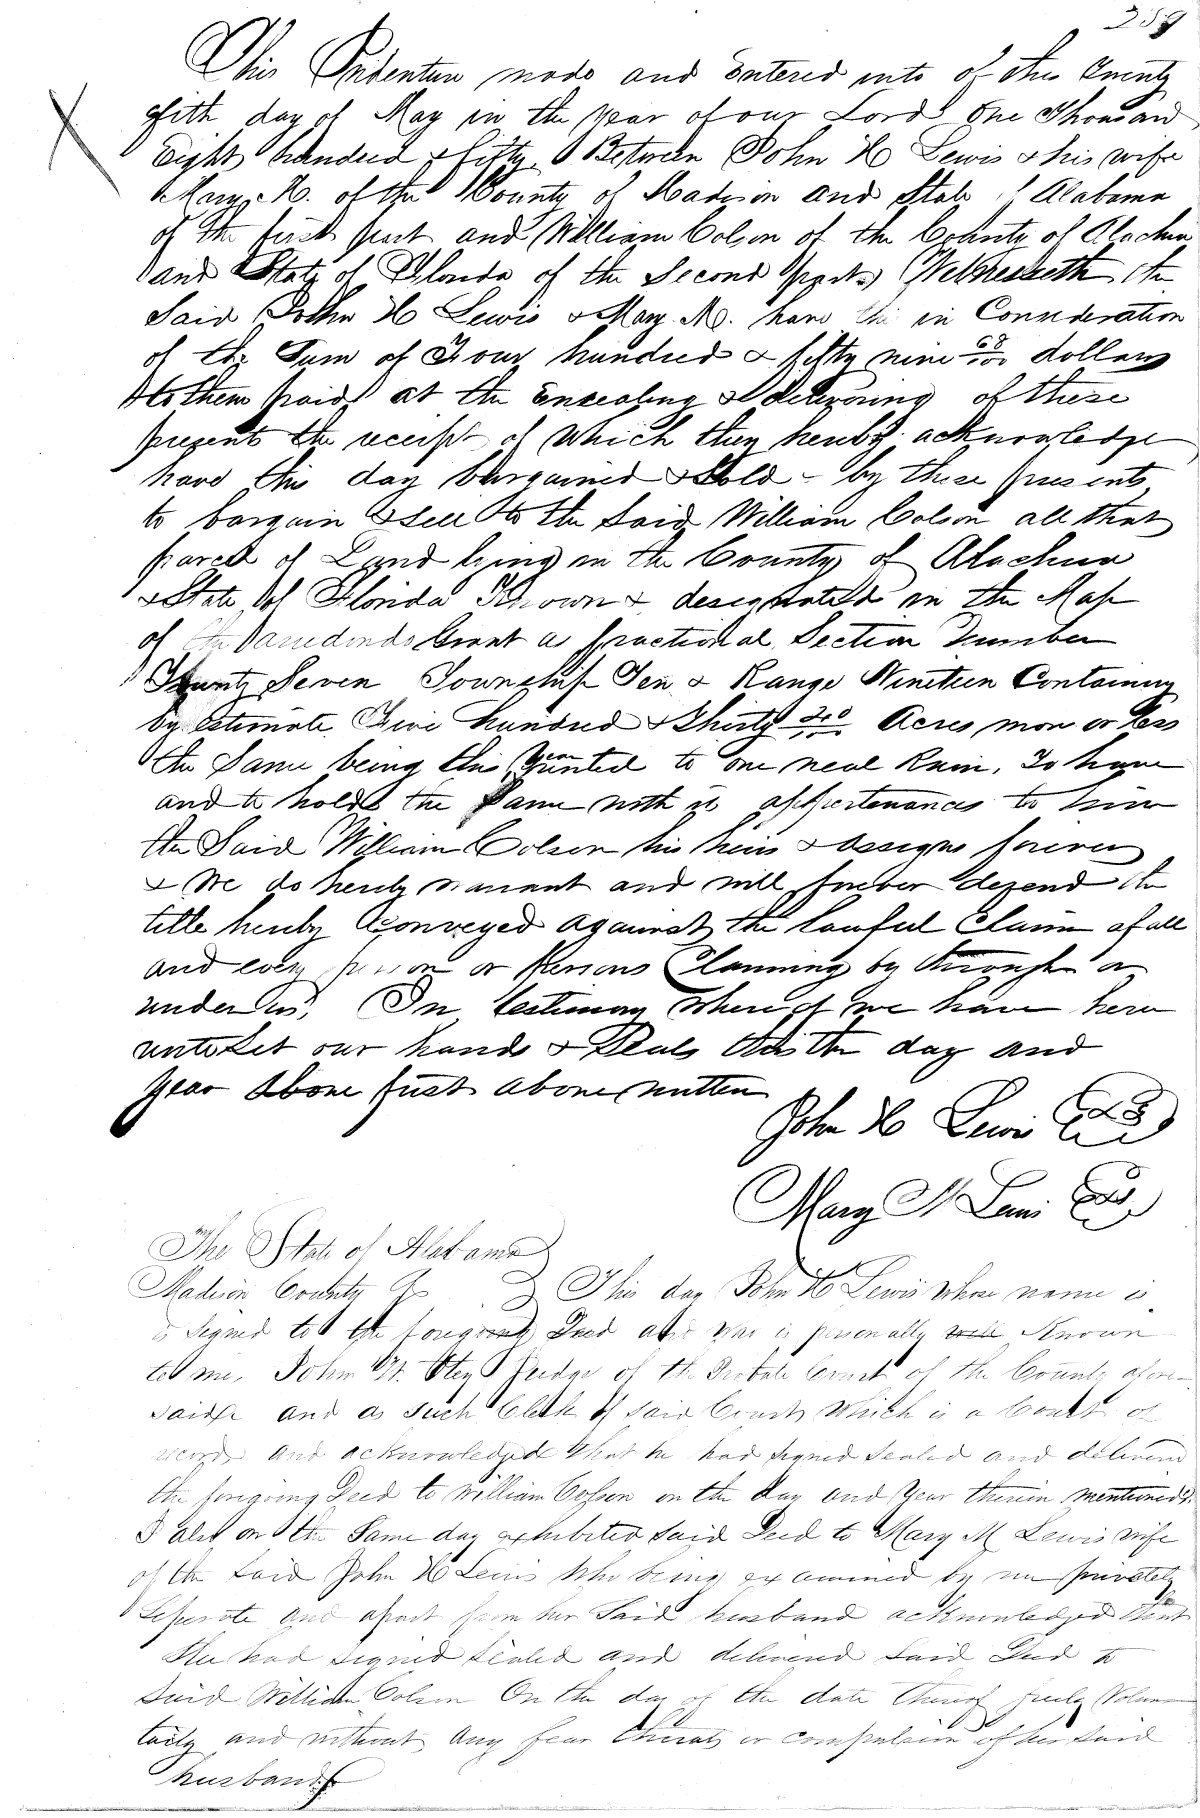 259
This Indenture made and Entered into of this Twenty
fifth day of May in the year of our Lord One Thousand
Eight hundred & fifty Between John H Lewis & his wife
Mary M. of the County of Madison and State of Alabama
of the first part and William Colson of the County of Alachua
and State of Florida of the Second part Witnesseth the
Said John H Lewis & Mary M. have this in Consideration
of the Sum of Four hundred & fifty nine 68/100 dollars
to them paid at the Ensealing & delivering of these
presents the receipt of which they hereby acknowledge
have this day bargained & Sold - by these presents
to bargain & Sell to the Said William Colson all that
parcel of Land lying in the County of Alachua
& State of Florida Known & designated in the Map
of the Arredondo Grant as fractional Section Number
Twenty Seven Township Ten & Range Nineteen Containing
by estimate Five hundred & Thirty 20/100 Acres more or less
the Same being this granted to one neal Rain, To have
and to hold the Same with it appertenances to him
the Said William Colson his heirs & assigns forever
& We do hereby warrant and will forever defend the
title hereby Conveyed against the lawful Claim of all
and every person or persons Claiming by through or
under us, In testimony where of we have here
unto Set our hands & Seals this the day and
year above first above written
John H Lewis LS
Mary M Lewis LS
The State of Alabama
Madison County This day John H Lewis whose name is
is Signed to the foregoing Deed and who is personally well Known
to me, John W. Otey Judge of the Probate Court of the County afore-
said and as such Clerk of Said Court, Which is a Court of
record and acknowledged that he had signed sealed and delivered
the foregoing Deed to William Colson on the day and year therein mentioned.
I also on the Same day exhibited said Deed to Mary M Lewis wife
of the Said John H Lewis Who being examined by me privately
Seperate and apart from her Said husband acknowledged that
She had signed sealed and delivered said Deed to
Said William Colson On the day of the date thereof freely Volun
tarily and without any fear threats or compulsion of her said
husband